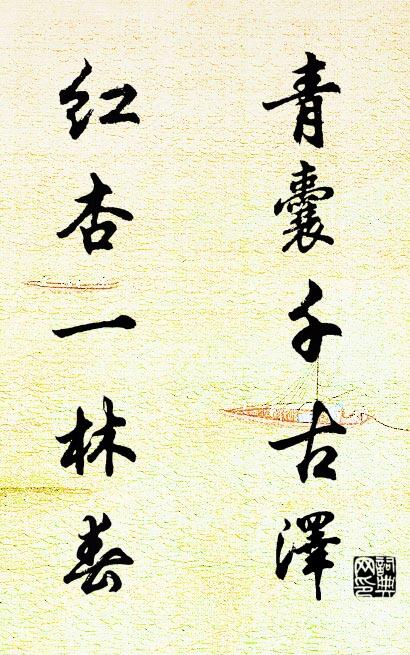 青囊千古澤
红杏一林春
詞典网印